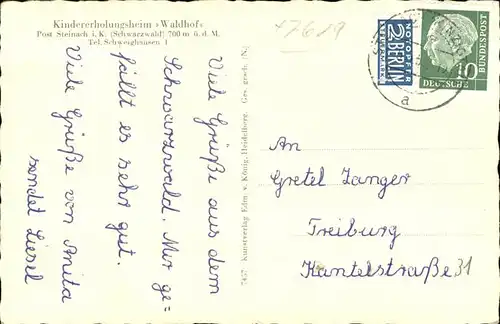 Kindererholungsheim »Waldhof«
Post Steinach i. K. (Schwarzwald) 700 m ü. d. M.
Tel. Schweighausen 1
Viele Grüße aus dem
Schwarzwald. Mir ge-
fällt es sehr gut.
Viele Grüße von Anita
sendet Liesel
Kunstverlag Edm. v. König, Heidelberg. Ges. gesch. (N.)
NOTOPFER
2 BERLIN
STEUERMARKE
10
DEUTSCHE
BUNDESPOST
a
An
Gretel Zanger
Freiburg
Kantelstraße 31